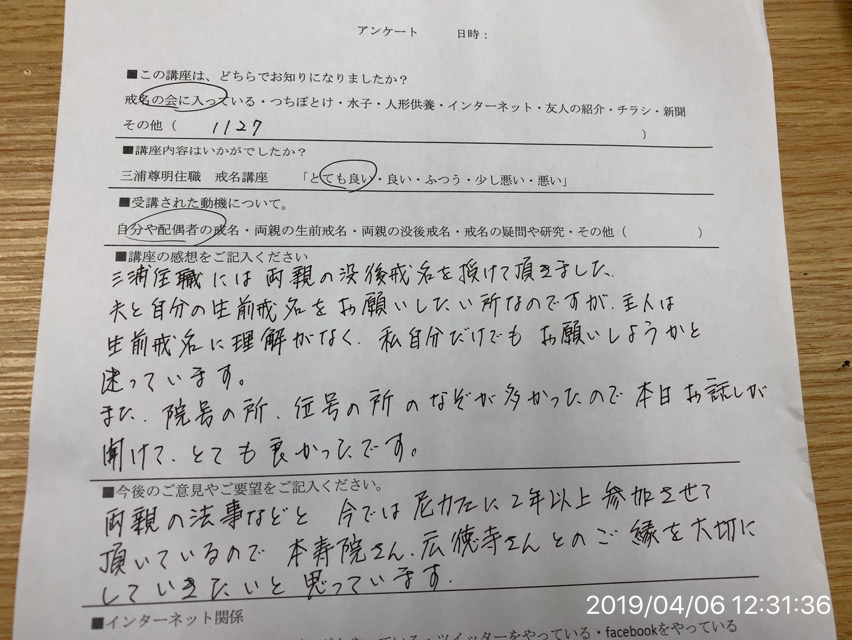 アンケート　　日時：
■この講座は、どちらでお知りになりましたか？
戒名の会に入っている・つちぼとけ・水子・人形供養・インターネット・友人の紹介・チラシ・新聞
その他（　1127　）
■講座内容はいかがでしたか？
三浦尊明住職　戒名講座　「とても良い・良い・ふつう・少し悪い・悪い」
■受講された動機について。
自分や配偶者の戒名・両親の生前戒名・両親の没後戒名・戒名の疑問や研究・その他（　　）
■講座の感想をご記入ください
三浦住職には両親の没後戒名を授けて頂きました。
夫と自分の生前戒名をお願いしたい所なのですが、主人は
生前戒名に理解がなく、私自分だけでもお願いしようかと
迷っています。
また、院号の所、位号の所のなぞが多かったので本日お話しが
聞けて、とても良かったです。
■今後のご意見やご要望をご記入ください。
両親の法事などと今では に2年以上参加させて
頂いているので本寿院さん、広徳寺さんとのご縁を大切に
していきたいと思っています。
■インターネット関係
ている・ツイッターをやっている・facebookをやっている
2019/04/06 12:31:36